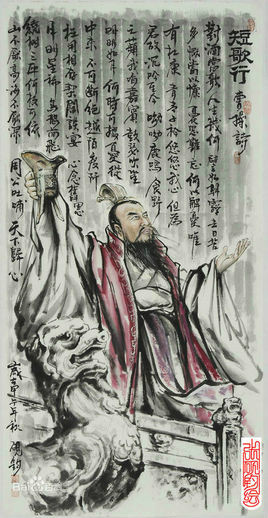 短歌行
曹操詩
對酒當歌人生幾何譬如朝露去日苦
多慨當以慷憂思難忘何以解憂唯
有杜康青青子衿悠悠我心但為
君故沉吟至今呦呦鹿鳴食野
之蘋我有嘉賓鼓瑟吹笙
明明如月何時可掇憂從
中來不可斷絕越陌度阡
枉用相存契闊談讌
心念舊恩
月明星稀烏鵲南飛
繞樹三匝何枝可依
山不厭高海不厭深
周公吐哺天下歸心
甲午年秋
Bai百科